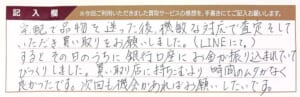 記入欄 ※今回ご利用いただきました買取サービスの感想を、手書きにてご記入お願いします。
宅配で品物を送った後、機敏な対応で査定をして
いただき買い取りをお願いしました。(LINEにて。)
するとその日のうちに銀行口座にお金が振り込まれていて
びっくりしました。買い取り店に持ち込むより時間のムダがなく
良かったです。次回も機会があればお願いしたいです。